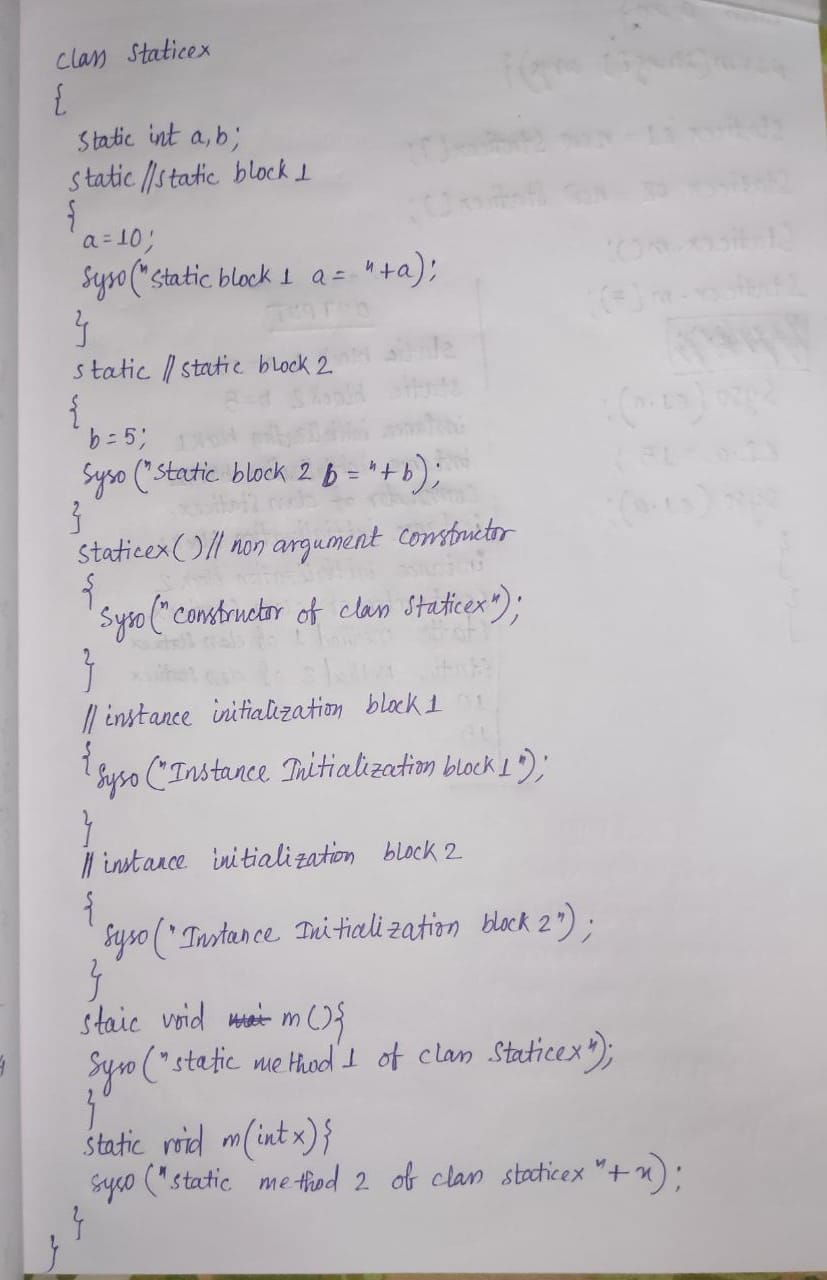 class Staticex
{
static int a,b;
static //static block 1
{
a=10;
Syso("static block 1 a = "+a);
}
static // static block 2
{
b=5;
Syso("static block 2 b = "+b);
}
Staticex() // non argument constructor
{
Syso("constructor of class Staticex");
}
// instance initialization block 1
{
Syso("Instance Initialization block 1");
}
// instance initialization block 2
{
Syso("Instance Initialization block 2");
}
staic void m(){
Syso("static method 1 of class Staticex");
}
static void m(int x){
syso("static method 2 of class staticex "+x);
}
}